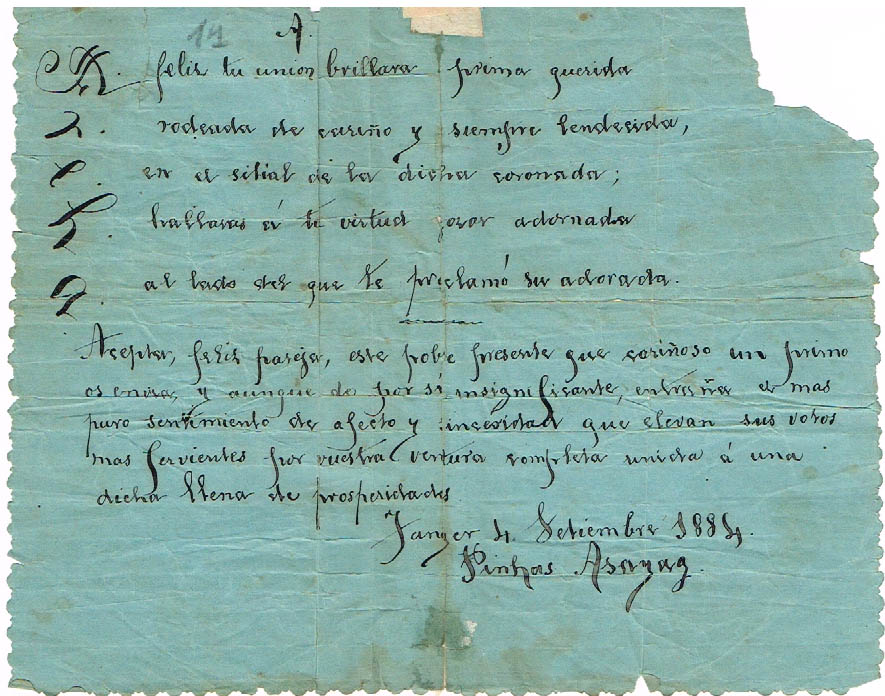 14
A.
feliz tu union brillara prima querida
rodeada de cariño y siempre bendecida,
en el sitial de la dicha coronada;
hallaras á tu virtud gozar adornada
al lado del que te proclamó su adorada.
Aceptar, feliz pareja, este pobre presente que cariñoso un primo
os envia, y aunque de por sí insignificante, entraña el mas
puro sentimiento de afecto y sinceridad que elevan sus votos
mas fervientes por vuestra ventura completa unida á una
dicha llena de prosperidades
Tanger 4 Setiembre 1884.
Pinhas Asayag.